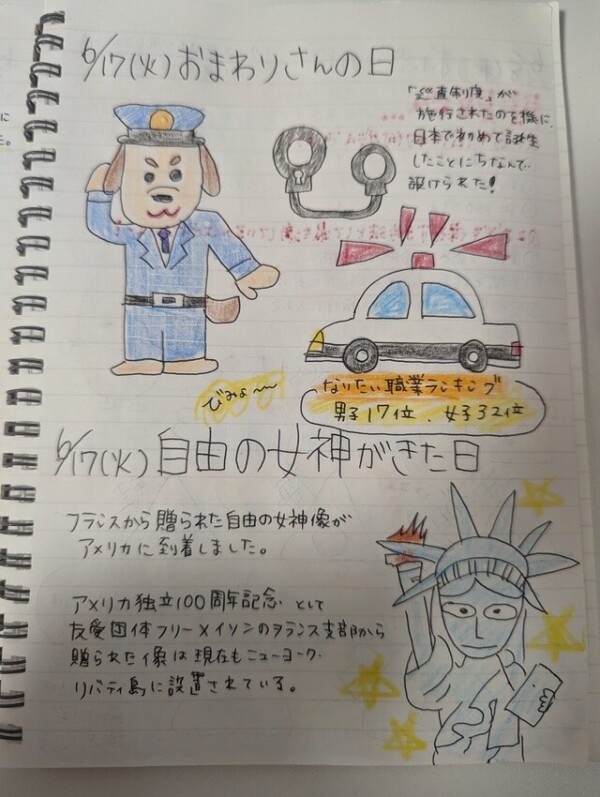 6/17(火)おまわりさんの日
「巡査制度」が
施行されたのを機に、
日本で初めて誕生
したことにちなんで
設けられた!
びみょ〜〜
なりたい職業ランキング
男子17位、女子32位
6/17(火)自由の女神がきた日
フランスから贈られた自由の女神像が
アメリカに到着しました。
アメリカ独立100周年記念として
友愛団体フリーメイソンのフランス支部から
贈られた像は現在もニューヨーク・
リバティ島に設置されている。